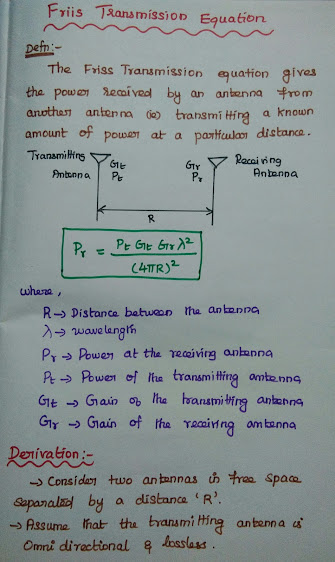 Friis Transmission Equation
Defn:-
The Friss Transmission equation gives
the power Received by an antenna from
another antenna (ie) transmitting a known
amount of power at a particular distance.
Transmitting Antenna Gt Pt
Gr Pr Receiving Antenna
R
Pr = Pt Gt Gr λ² / (4πR)²
where,
R → Distance between the antenna
λ → wavelength
Pr → Power at the receiving antenna
Pt → Power of the transmitting antenna
Gt → Gain of the transmitting antenna
Gr → Gain of the receiving antenna
Derivation:-
→ Consider two antennas in free space
separated by a distance 'R'.
→ Assume that the transmitting antenna is
Omni directional & lossless.